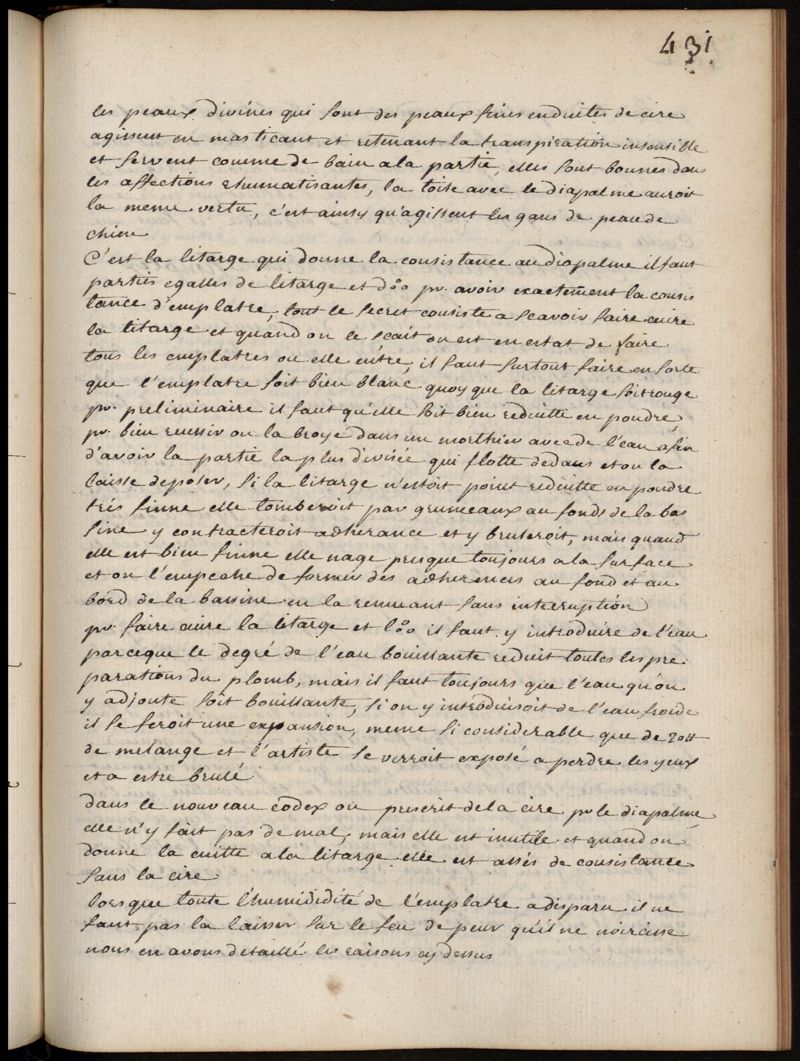 431
les peaux divines qui sont des peaux fines enduites de cire
agissent en masticant et retenant la transpiration insensible
et servent comme de bain a la partie, elles sont bonnes dans
les affections rhumatisantes, la toile avec le diapalme auroit
la meme vertu, c'est ainsy qu'agissent les gans de peau de
chien
C'est la litarge qui donne la consistance au diapalme il faut
parties egalles de litarge et d' pr. avoir exactement la consis
tance d'emplatre, tout le secret consiste a scavoir faire cuire
la litarge et quand on le scait on est en estat de faire
tous les emplatres ou elle entre, il faut surtout faire en sorte
que l'emplatre soit bien blanc quoy que la litarge soit rouge
pr. preliminaire il faut qu'elle soit bien reduitte en poudre,
pr. bien reussir on la broye dans un morthier avec de l'eau afin
d'avoir la partie la plus divisée qui flotte dedans et on la
laisse deposer, si la litarge n'estoit point reduitte en poudre
trés finne elle tomberoit par grumeaux au fond de la bas
sine y contracteroit adherance et y bruleroit, mais quand
elle est bien finne elle nage presque toujours a la surface
et on l'empeche de former des adherences au fond et au
bord de la bassine en la remuant sans interruption
pr. faire cuire la litarge et l' il faut y introduire de l'eau
parceque le degré de l'eau bouillante reduit toutes les pre
parations du plomb, mais il faut toujours que l'eau qu'on
y adjoute soit bouillante, si on y introduisoit de l'eau froide
il se feroit une expansion, meme si considerable que de
de melange et l'artiste se verroit exposé a perdre les yeux
et a estre brulé
dans le nouveau codex on prescrit de la cire pr le diapalme,
elle n'y fait pas de mal, mais elle est inutile et quand on
donne la cuitte a la litarge elle est assés de consistance
sans la cire
lorsque toute l'humididité de l'emplatre a disparu il ne
faut pas la laisser sur le feu de peur qu'il ne noircisse
nous en avons detaillé les raisons cy dessus